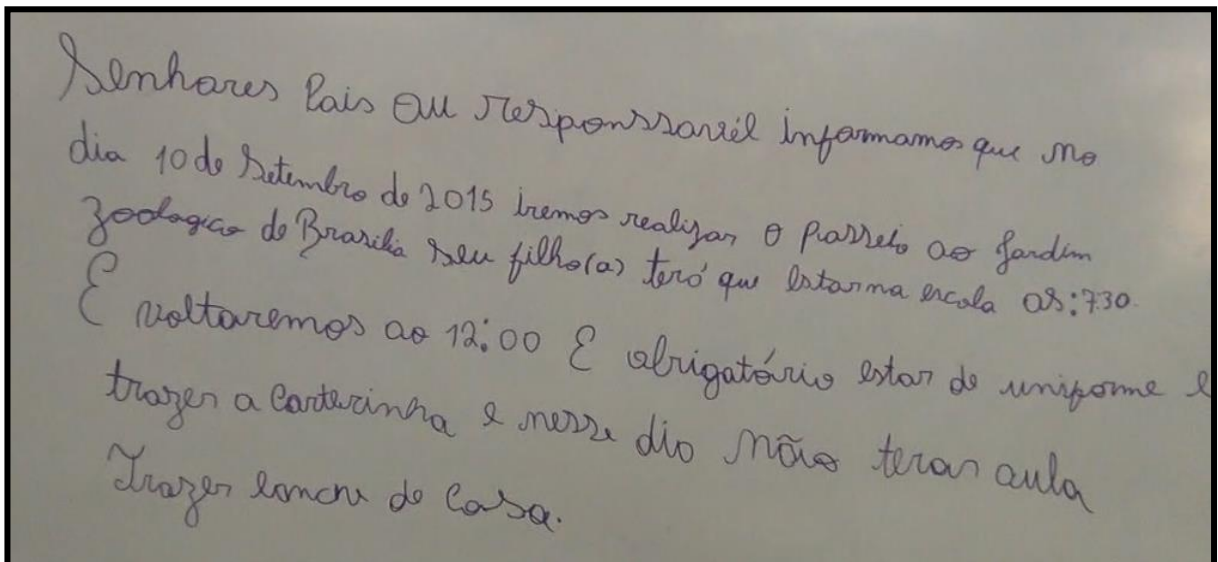 Senhores Pais ou responssavél informamos que no
dia 10 de Setembro de 2015 iremos realizar o passeio ao Jardim
Zoologico de Brasilia seu filho(a) terá que estar na escola as:730.
E voltaremos ao 12:00 E obrigatório estar de uniforme e
trazer a carteirinha e nesse dia não teran aula
Trazer lanche de casa.